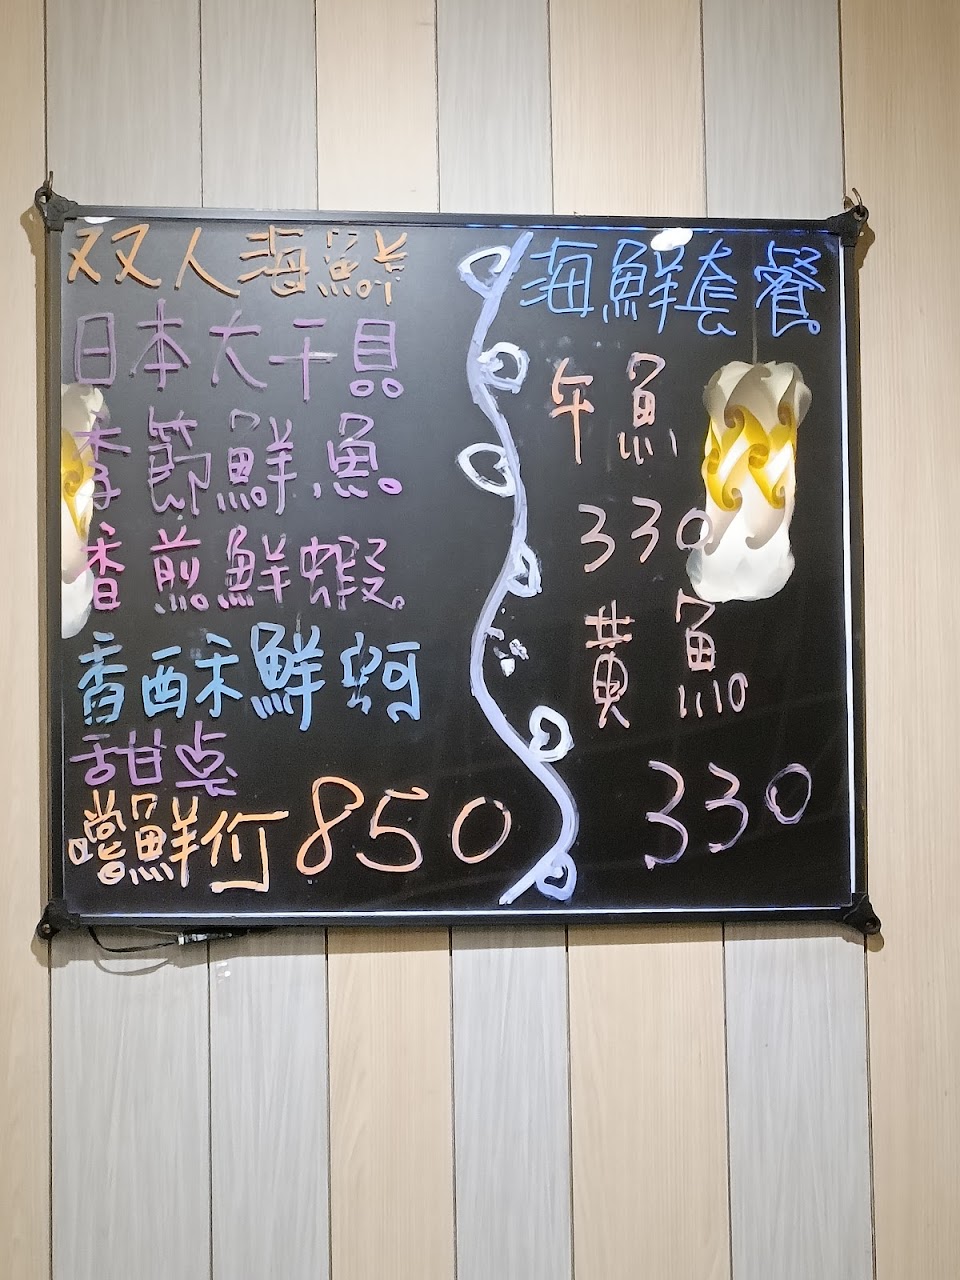 双人海鮮
日本大干貝
季節鮮魚
香煎鮮蝦
香酥鮮蚵
甜点
嚐鮮价850
海鮮套餐
午魚
330
黄魚
330